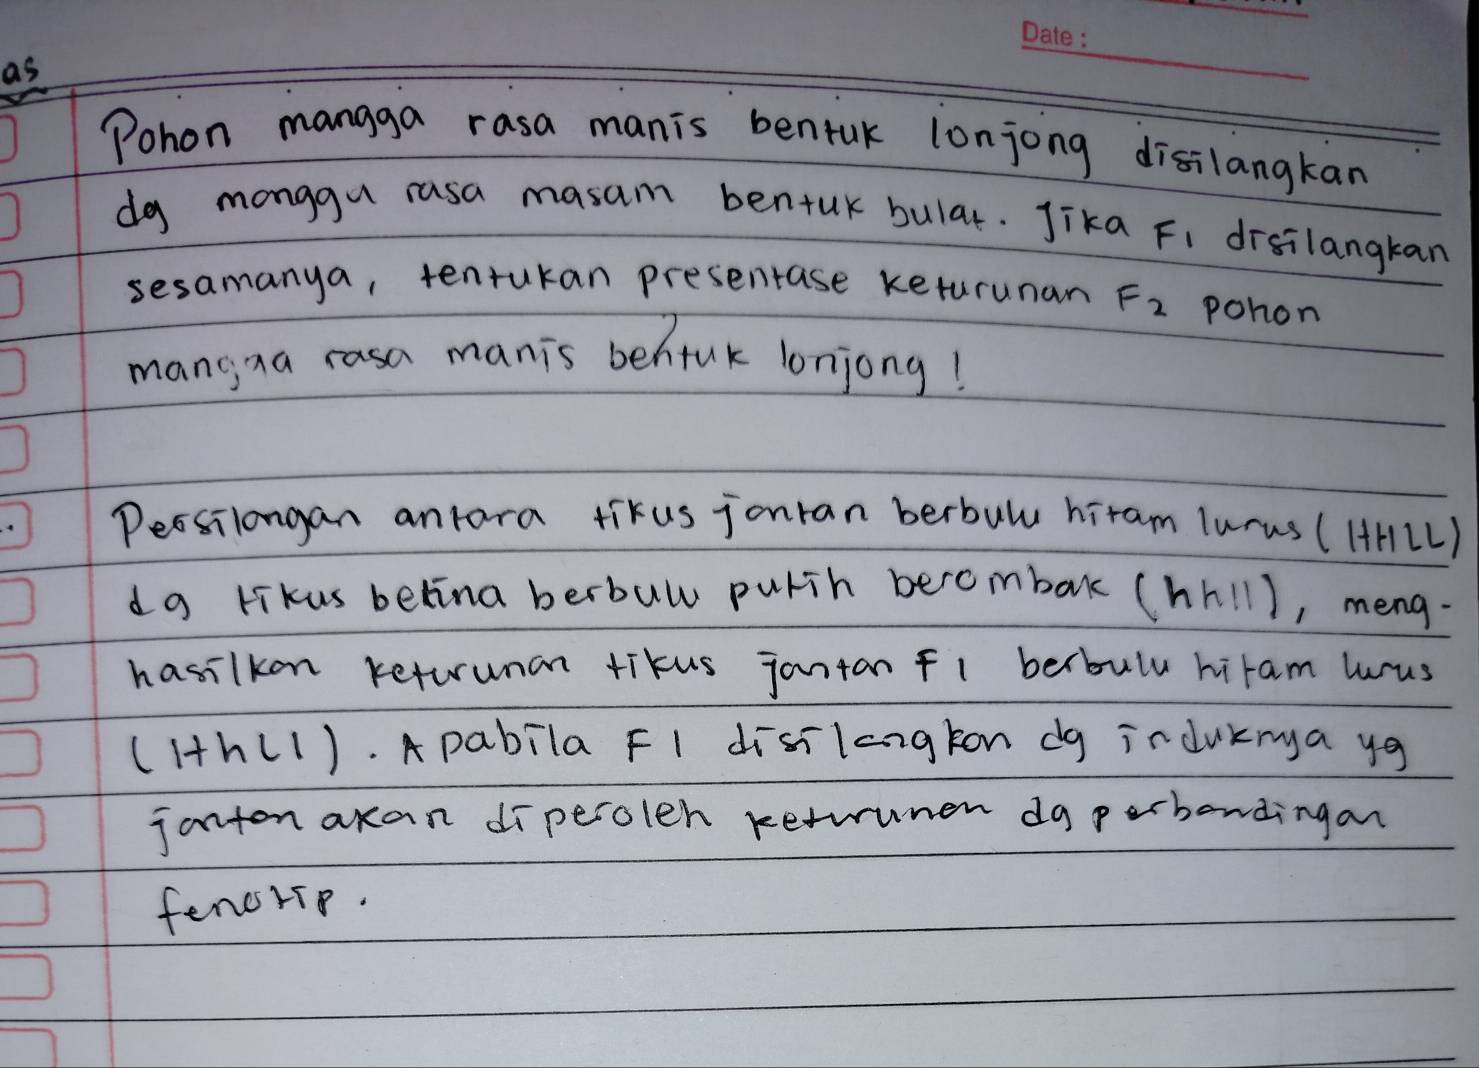 Date :
as
Pohon mangga rasa manis bentuk lonjong disilangkan
dg mangga rasa masam bentuk bulat. Jika F1 disilangkan
sesamanya, tentukan presentase keturunan F2 pohon
mangga rasa manis bentuk lonjong!
Persilangan antara tikus jantan berbulu hitam lurus (HHLL)
dg tikus betina berbulu putih berombak (hhll), meng-
hasilkan keturunan tikus jantan F1 berbulu hitam lurus
(HhLl). Apabila F1 disilangkan dg induknya yg
jantan akan diperoleh keturunan dg perbandingan
fenotip.